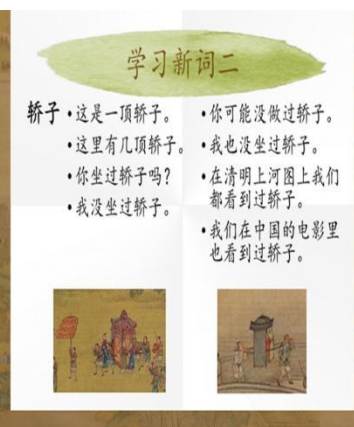 学习新词二
轿子
•这是一顶轿子。
•这里有几顶轿子。
•你坐过轿子吗？
•我没坐过轿子。
•你可能没做过轿子。
•我也没坐过轿子。
•在清明上河图上我们
都看到过轿子。
•我们在中国的电影里
也看到过轿子。